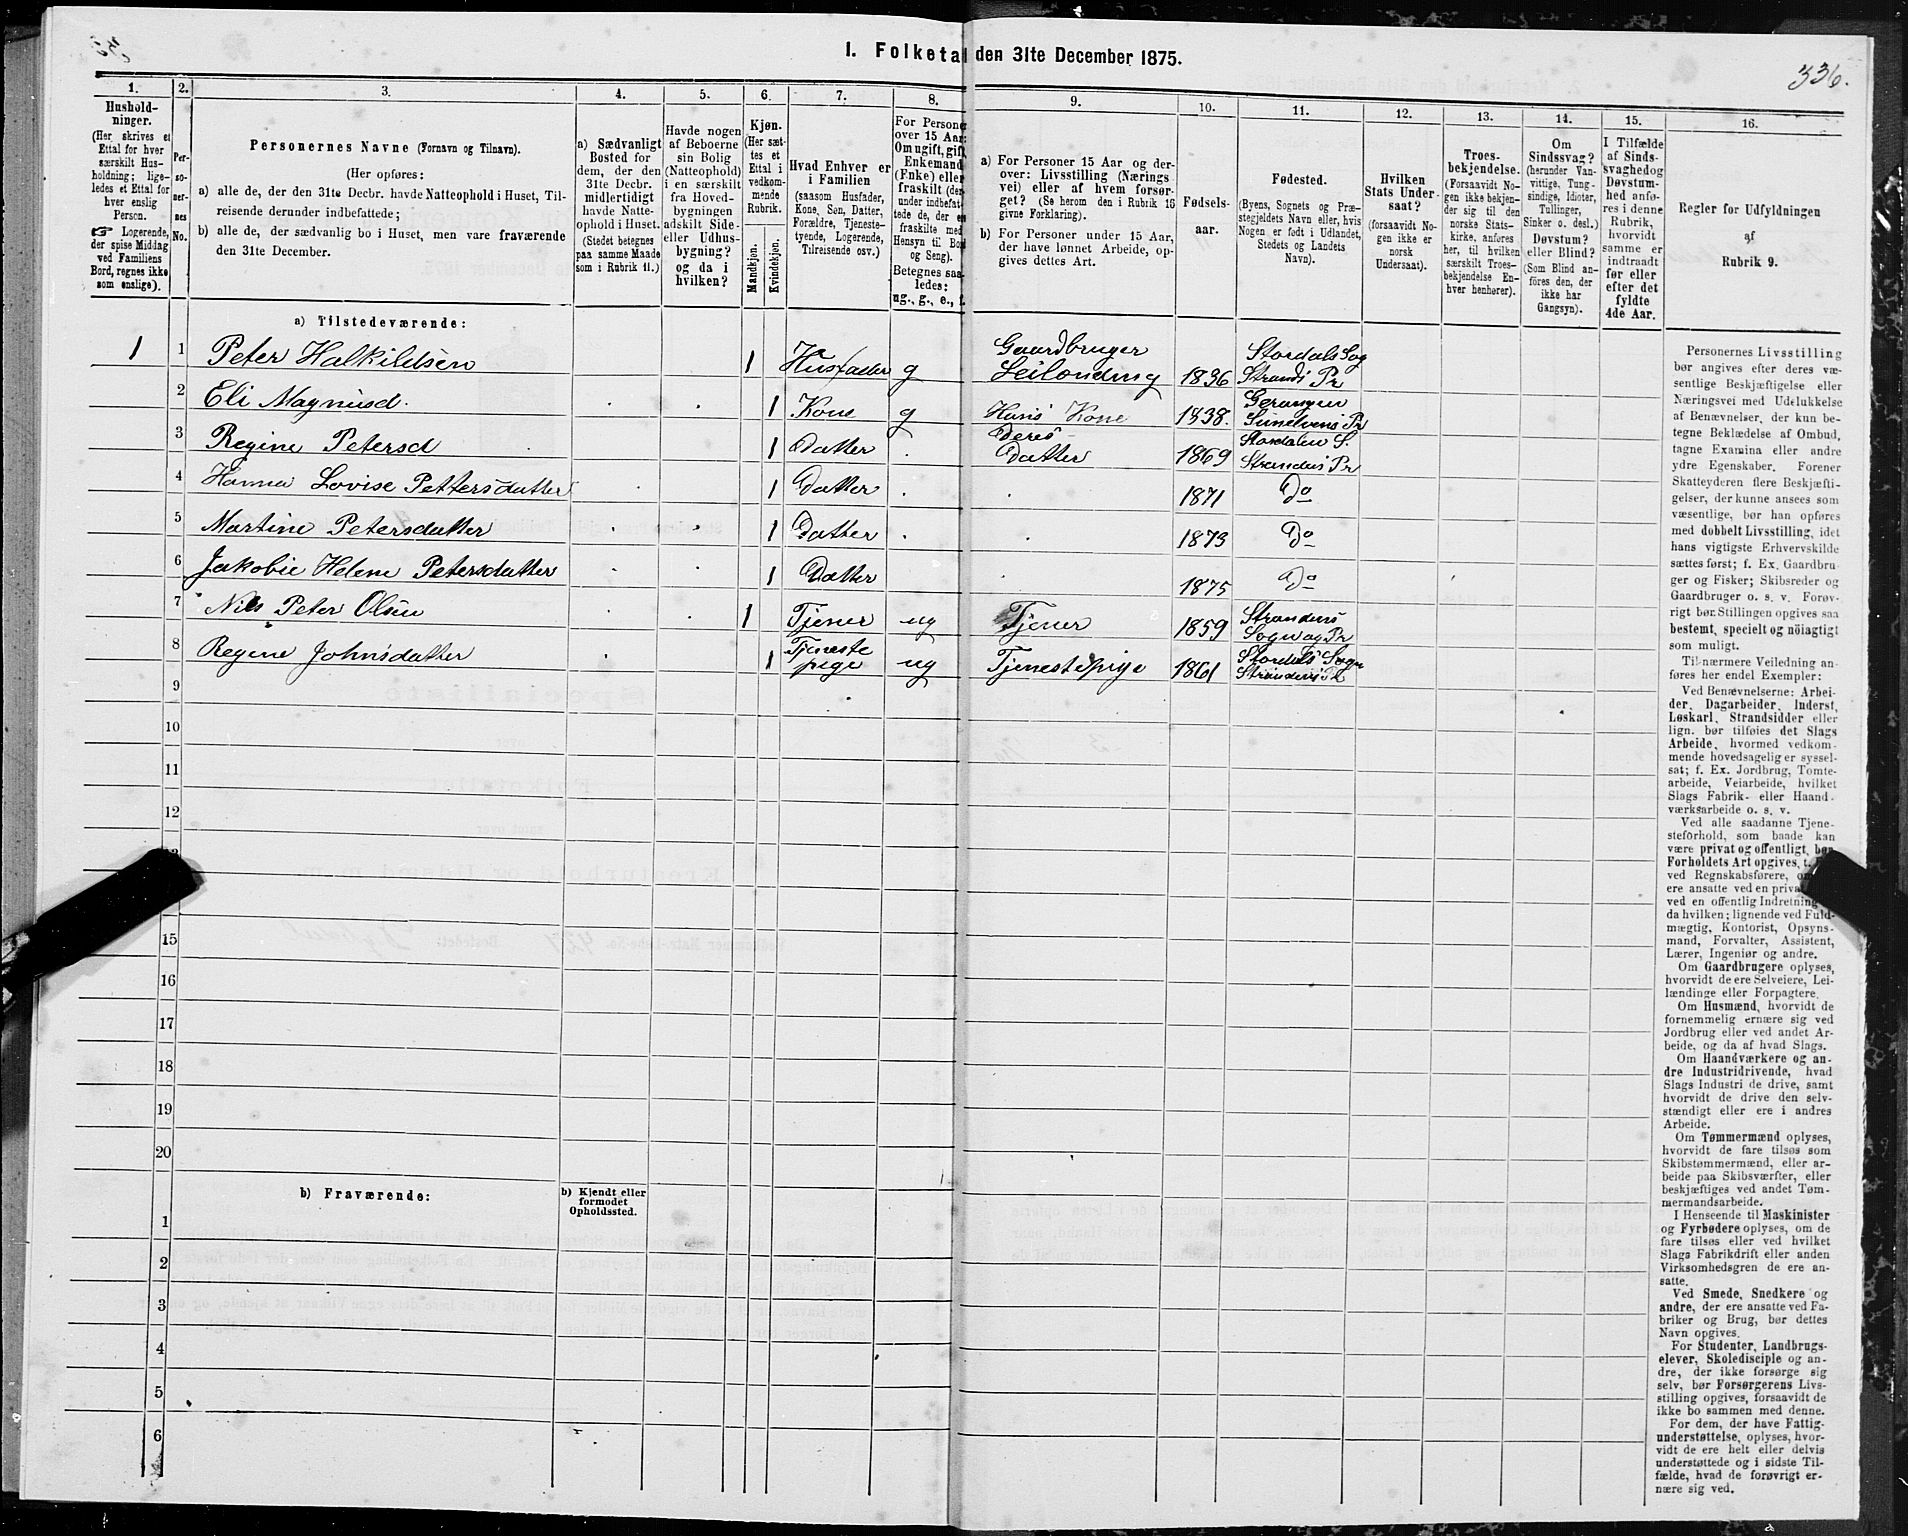 I. Folketal den 31te December 1875.
336.
1.
Hushold-
ninger.
(Her skrives et
Ettal for hver
særskilt Hus-
holdning; lige-
ledes et Ettal for
hver enslig
Person.
☞ Logerende,
der spise Middag
ved Familiens
Bord, regnes ikke
som enslige).
2.
Per-
so-
ner-
nes
No.
3.
Personernes Navne (Fornavn og Tilnavn).
(Her opføres:
a) alle de, der den 31te Decbr. havde Natteophold i Huset, Til-
reisende derunder indbefattede;
b) alle de, der sædvanlig bo i Huset, men vare fraværende
den 31te December.
4.
a) Sædvanligt
Bosted for
dem, der den
31te Decbr.
midlertidigt
havde Natte-
ophold i Huset.
(Stedet betegnes
paa samme Maade
som i Rubrik 11.)
5.
Havde nogen
af Beboerne
sin Bolig
(Natteophold)
i en særskilt
fra Hoved-
bygningen
adskilt Side-
eller Udhus-
bygning?
og da i
hvilken?
6.
Kjøn.
(Her sæt-
tes et
Ettal i
vedkom-
mende
Rubrik.
Mandkjøn.
Kvindekjøn.
7.
Hvad Enhver er
i Familien
(saasom Husfader,
Kone, Søn, Datter,
Forældre, Tjeneste-
tyende, Logerende,
Tilreisende osv.)
8.
For Persone
over 15 Aar:
Om ugift, gift,
Enkemand
(Enke) eller
fraskilt (der-
under indbefat-
tede de, der er
fraskilte med
Hensyn til Bo
og Seng).
Betegnes saa-
ledes:
ug., g., e., f.
9.
a) For Personer 15 Aar og der-
over: Livsstilling (Nærings-
vei) eller af hvem forsør-
get? (Se herom den i Rubrik 16
givne Forklaring).
b) For Personer under 15 Aar,
der have lønnet Arbeide, op-
gives dettes Art.
10.
Fødsels-
aar.
11.
Fødested.
(Byens, Sognets og Præ-
stegjeldets Navn eller, hvis
Nogen er født i Udlandet,
Stedets og Landets
Navn).
12.
Hvilken
Stats Under-
saat?
(forsaavidt No-
gen ikke er
norsk
Undersaat).
13.
Troes-
bekjendelse.
(Forsaavidt No-
gen ikke bekjen-
der sig til den
norske Stats-
kirke, anføres
her, til hvilken
særskilt Troes-
bekjendelse En-
hver henhører).
14.
Om
Sindssvag?
(herunder Van-
vittige, Tung-
sindige, Idioter,
Tullinger,
Sinker o. desl.)
Døvstum?
eller Blind?
(Som Blind an-
føres den, der
ikke har
Gangsyn).
15.
I Tilfælde
af Sinds-
svaghed og
Døvstum-
hed anfø-
res i denne
Rubrik,
hvorvidt
samme er
indtraadt
før eller
efter det
fyldte
4de Aar.
16.
Regler for Udfyldningen
af
Rubrik 9.
a) Tilstedeværende:
1 1 Peter Halkildsen 1 Husfader g Gaardbruger Leilending 1836 Stordals Sog Strands Pr
2 Eli Magnusd. 1 Kone g Hans Kone 1838. Gerangen Sunelvens Pr
3 Regine Petersd 1 Datter Deres Datter 1869 Stordalen S. Strandens Pr
4 Hanna Lovise Pettersdatter 1 Datter 1871 Do
5 Martine Petersdatter 1 Datter 1873 Do
6 Jakobie Helene Petersdatter 1 Datter 1875 Do
7 Nils Peter Olsen 1 Tjener ug Tjener 1859 Strandens Sogn og Pr
8 Regine Johnsdatter 1 Tjeneste pige ug Tjenestepige 1861 Stordals Sogn Strandens Pr
9
10
11
12
15
16
17
18
19
20
b) Fraværende:
b) Kjendt eller
formodet
Opholdssted.
1
2
3
4
5
6
Personernes Livsstilling
bør angives efter deres væ-
sentlige Beskjæftigelse eller
Næringsvei med Udelukkelse
af Benævnelser, der kun be-
tegne Beklædelse af Ombud,
tagne Examina eller andre
ydre Egenskaber. Forener
Skatteyderen flere Beskjæfti-
gelser, der kunne ansees som
væsentlige, bør han opføres
med dobbelt Livsstilling, idet
hans vigtigste Erhvervskilde
sættes først; f. Ex. Gaardbru-
ger og Fisker; Skibsreder og
Gaardbruger o. s. v. Forøv-
rigt bør Stillingen opgives saa
bestemt, specielt og nöiagtigt
som muligt.
Til nærmere Veiledning an-
føres her endel Exempler:
Ved Benævnelserne: Arbei-
der, Dagarbeider, Inderst,
Løskarl, Strandsidder eller
lign. bør tilføies det Slags
Arbeide, hvormed vedkom-
mende hovedsagelig er syssel-
sat; f. Ex. Jordbrug, Tomte-
arbeide, Veiarbeide, hvilket
Slags Fabrik- eller Haand-
værksarbeide o. s. v.
Ved alle saadanne Tjene-
steforhold, som baade kan
være privat og offentligt, bør
Forholdets Art opgives, t.
ved Regnskabsførere, om
ere ansatte ved en privat
ved en offentlig Indretning
da hvilken; lignende ved Fuld-
mægtig, Kontorist, Opsyns-
mand, Forvalter, Assistent,
Lærer, Ingeniør og andre.
Om Gaardbrugere oplyses,
hvorvidt de ere Selveiere, Lei-
lændinge eller Forpagtere.
Om Husmænd, hvorvidt de
fornemmelig ernære sig ved
Jordbrug eller ved andet Ar-
beide, og da af hvad Slags.
Om Haandværkere og an-
dre Industridrivende, hvad
Slags Industri de drive, samt
hvorvidt de drive den selv-
stændigt eller ere i andres
Arbeide.
Om Tømmermænd oplyses,
hvorvidt de fare tilsøs som
Skibstømmermænd, eller ar-
beide paa Skibsværfter, eller
beskjæftiges ved andet Tøm-
mermandsarbeide.
I Henseende til Maskinister
og Fyrbødere oplyses, om de
fare tilsøs eller ved hvilket
Slags Fabrikdrift eller anden
Virksomhedsgren de ere an-
satte.
Ved Smede, Snedkere og
andre, der ere ansatte ved Fa-
briker og Brug, bør dettes
Navn opgives.
For Studenter, Landbrugs-
elever, Skoledisciple og an-
dre, der ikke forsørge sig
selv, bør Forsørgerens Livs-
stilling opgives, forsaavidt de
ikke bo sammen med denne.
For dem, der have Fattig-
understøttelse, oplyses, hvor-
vidt de ere helt eller delvis
understøttede og i sidste Til-
fælde, hvad de forøvrigt er-
nære sig ved.